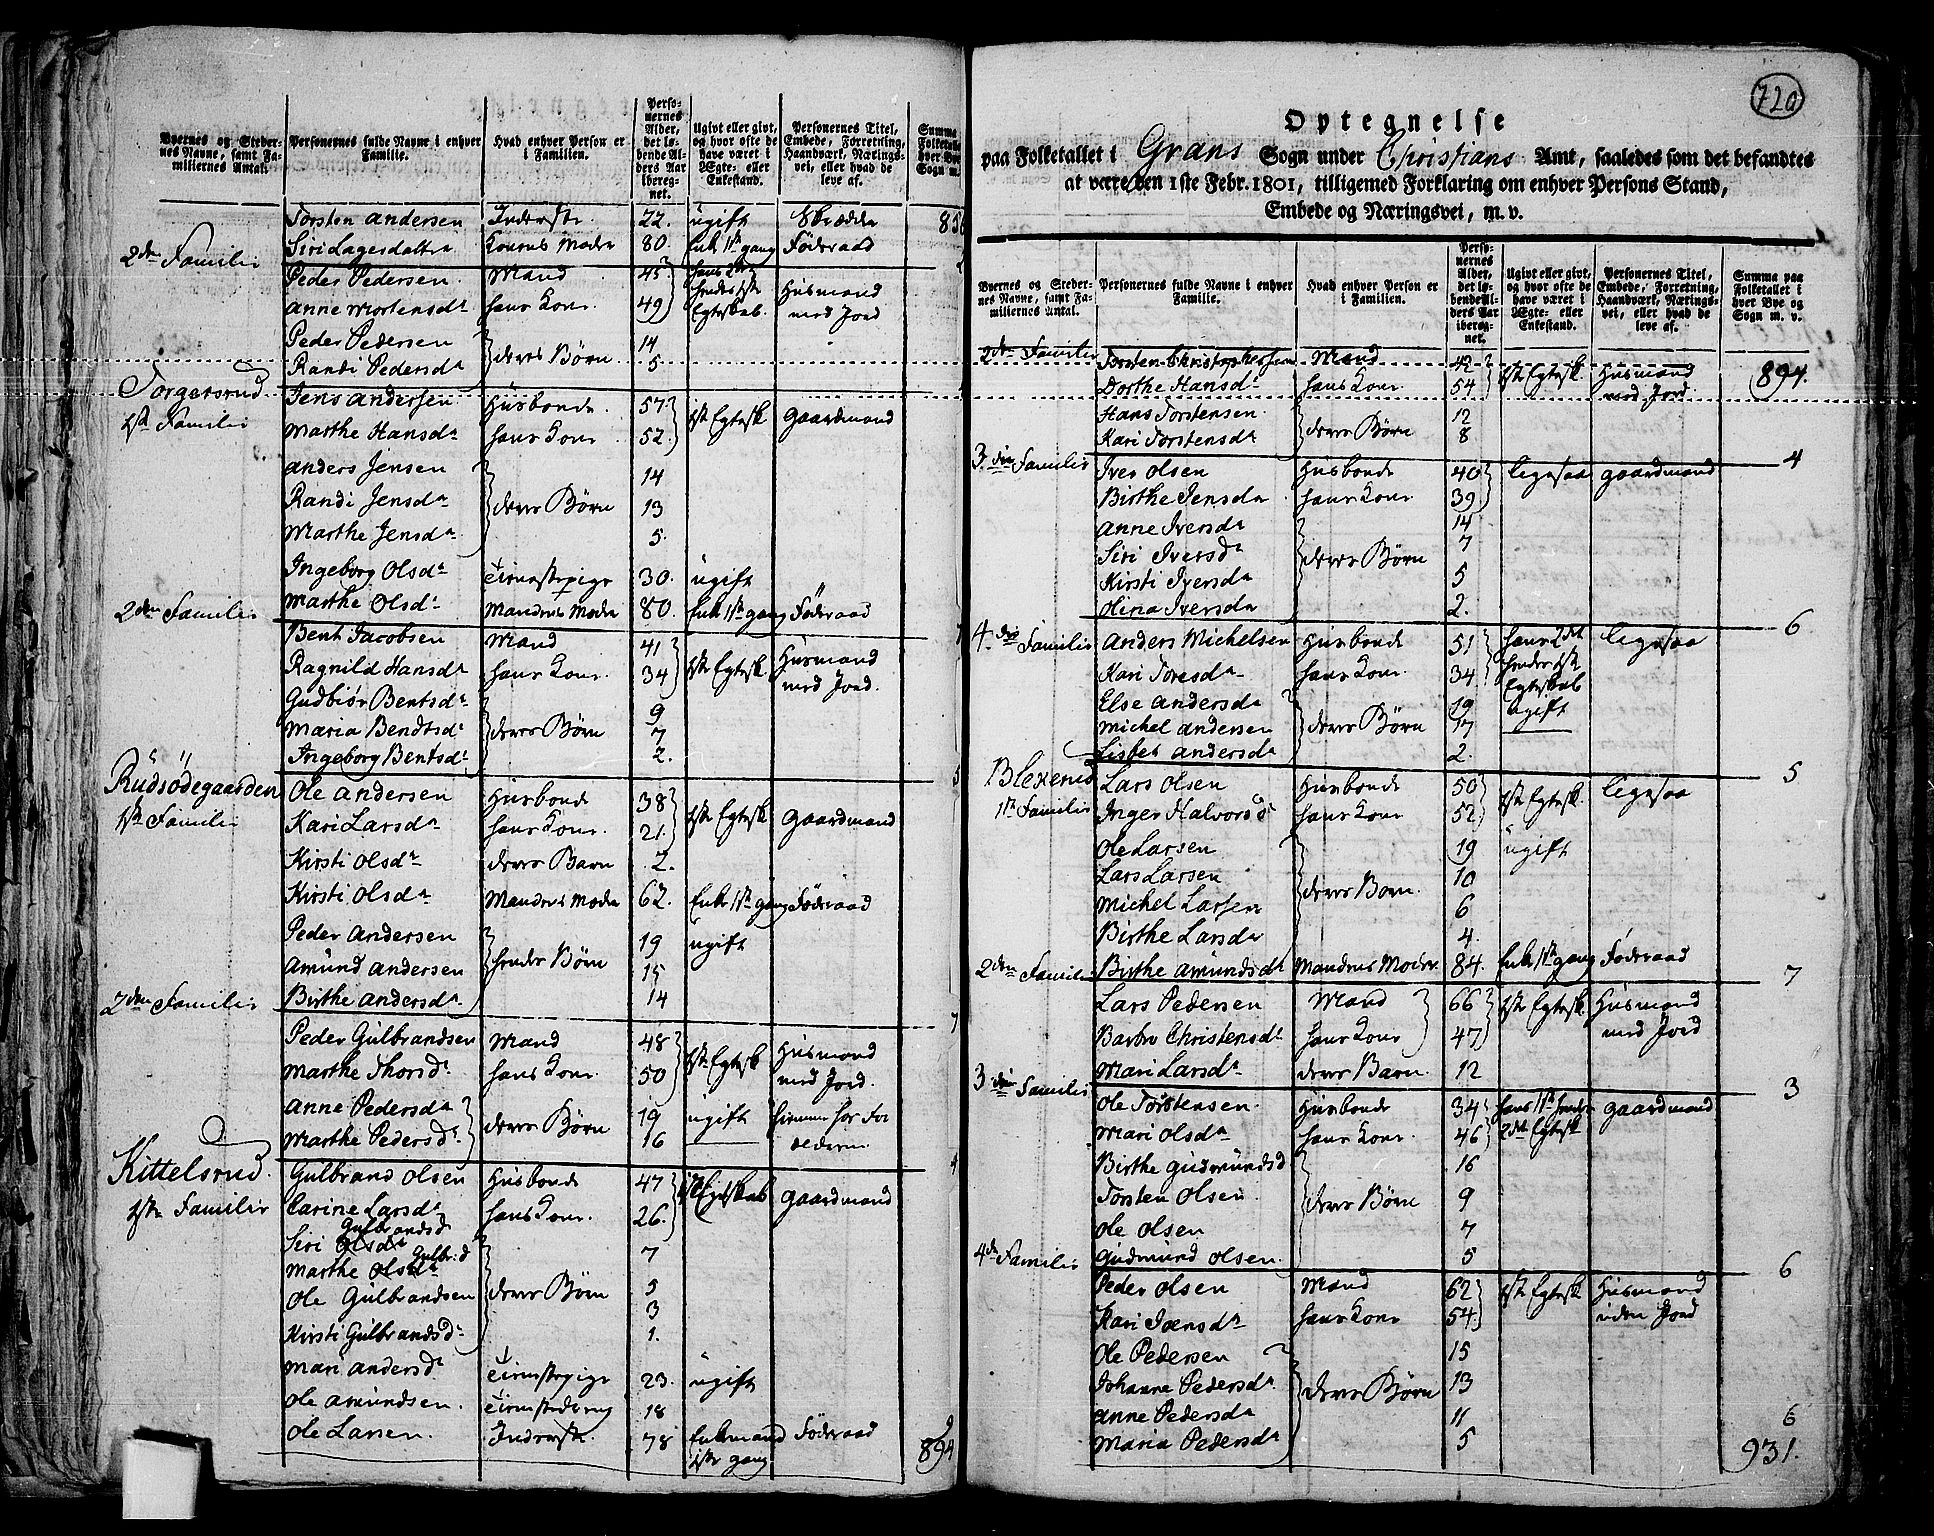 Byernes og Stedernes Navne, samt Familiernes Antal. | Personernes fulde Navne i enhver Familie. | Hvad enhver Person er i Familien. | Personernes Alder, det løbende Alders Aar iberegnet. | Ugivt eller givt, og hvor ofte de have været i Ægte- eller Enkestand. | Personernes Titel, Embede, Forretning, Haandværk, Næringsvei, eller hvad de leve af. | Summa Folketallet hver Bye Sogn m.
Torsten Andersen | Inderste | 22. | ugift | Skrædder | 
Siri Lagesdatter | Konens Moder | 80. | Enke 1ste gang | Føderaad
2den Familie
Peder Pedersen | Mand | 45 | hans 2det | Huusmand
Anne Mortensdr | hans Kone | 49 | hendes 1ste Egteskab. | med Jord
Peder Pedersen | deres Børn | 14
Randi Pedersdr | 5.
Torgersrud
1ste Familie
Jens Andersen | Husbonde | 57. | 1ste Egtesk | Gaardmand
Marthe Hansdr | hans Kone | 52.
Anders Jensen | 14
Randi Jensdr | deres Børn | 13
Marthe Jensdr | 5.
Ingeborg Olsdr | Tienistepige | 30. | ugift
Marthe Olsdr | Mandens Moder | 80. | Enke 1ste gang | Føderaad
2den Familie
Bent Jacobsen | Mand | 41 | 1ste Egtesk. | Husmand
Ragnild Hansdr | hans Kone | 34 | med Jord.
Gudbiør Bentsdr | 9
Maria Bendtsdr | deres Børn | 7
Ingeborg Bentsdr | 2.
Rudsødegaarden
1ste Familie
Ole Andersen | Husbonde | 38 | 1ste Egtesk | Gaardmand | 5
Kari Larsdr | hans Kone. | 21.
Kirsti Olsdr | deres Barn | 2.
Kirsti Olsdr | Mandens Moder | 62. | Enke 1ste gang | Føderaad
Peder Andersen | 19 | ugift
Amund Andersen | hendes Børn | 15
Birthe Andersdr | 14
2den Familie | 7
Peder Gulbrandsen | Mand | 48 | 1ste Egtesk | Husmand
Marthe Thorsdr | hans Kone. | 50 | med Jord.
Anne Pedersdr | deres Børn | 19 | ugift | tienner hos For
Marthe Pedersdr | 16 | ældrene
Kittelsrud
1ste Familie
Gulbrand Olsen | Husbonde | 47 | Egteskab | Gaardmand | 4
Carine Larsdr | hans Kone. | 26.
Siri Olsdr Gulbrandsd | 7
Marthe Olsdr Gulbr:d | 5
Ole Gulbrandsen | deres Børn | 3
Kirsti Gulbrandsdr | 1.
Mari Andersdr | Tienistepige | 23. | ugift
Ole Amundsen. | Tienistedreng | 18
Ole Larsen. | Inderste. | 78 | Enkemand 1ste gang | Føderaad | 9
894
720
Optegnelse
paa Folketallet i Grans Sogn under Christians Amt, saaledes som det befandtes
at være den 1ste Febr. 1801, tilligemed Forklaring om enhver Persons Stand,
Embede og Næringsvei, m. v.
Byernes og Stedernes Navne, samt Familiernes Antal. | Personernes fulde Navne i enhver Familie. | Hvad enhver Person er i Familien. | Personernes Alder, det løbende Alders Aar iberegnet. | Ugivt eller givt, og hvor ofte de have været i Ægte- eller Enkestand. | Personernes Titel, Embede, Forretning, Haandværk, Næringsvei, eller hvad de leve af. | Summa paa Folketallet i hver Bye og Sogn m. v.
2den Familie
Torsten Christophersen | Mand | 42 | 1ste Egtesk. | Husmand | 894.
Dorthe Hansdr | hans Kone | 54 | med Jord.
Hans Torstensen | deres Børn | 12
Kari Torstensdr | 8
3die Familie | 4
Iver Olsen | Husbonde | 40 | ligesaa | Gaardmand
Birthe Jensdr | hans Kone | 39
Anne Iversdr | 14
Siri Iversdr | deres Børn | 7
Kirsti Iversdr | 5
Olina Iversdr | 2.
4de Familie | 6
Anders Michelsen | Husbonde | 51 | hans 2det | ligesaa
Kari Toresdr | hans Kone. | 34. | hendes 1ste Egteskab
Else Andersdr | 19 | ugift
Michel Andersen | deres Børn | 17
Lisbet Andersdr | 2.
Blexerud | 5
1ste Familie
Lars Olsen | Husbonde | 50 | 1ste Egtesk. | ligesaa
Inger Halvorsdr | hans Kone | 52
Ole Larsen | 19 | ugift
Lars Larsen | deres Børn. | 10
Michel Larsen | 6
Birthe Larsdr | 4.
Birthe Amundsdr | Mandens Moder. | 84. | Enke 1ste gang | Føderaad
2den Familie | 7
Lars Pedersen | Mand | 66 | 1ste Egtesk | Husmand
Barbro Christensdr | hans Kone | 47 | med Jord
Mari Larsdr | deres Barn. | 12
3die Familie | 3
Ole Torstensen. | Husbonde | 34 | hans 1ste hendes | Gaardmand
Mari Olsdr | hans Kone. | 46 | 2det Egtesk
Birthe Gudmundsd | 16
Torsten Olsen. | deres Børn | 9
Ole Olsen | 7
Gudmund Olsen. | 5
4de Familie | 6
Peder Olsen | Mand | 62 | 1ste Egtesk | Husmand
Kari Joensdr | hans Kone | 54. | uden Jord
Ole Pedersen | 15
Johanne Pedersdr | deres Børn | 13
Anne Pedersdr | 11
Maria Pedersdr | 5 | 6
931.